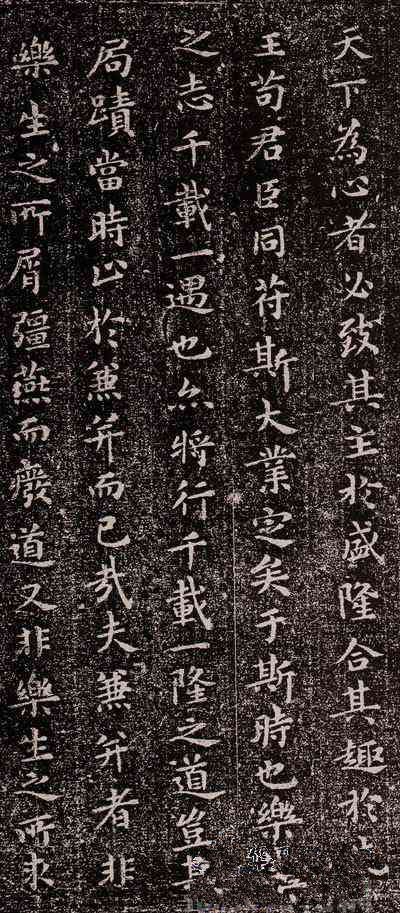 天下為心者必致其主於盛隆合其趣於
王苟君臣同苻斯大業定矣于斯時也樂
之志千載一遇也亦將行千載一隆之道豈其
局蹟當時止於兼并而已哉夫兼并者非
樂生之所屑彊燕而廢道又非樂生之所求